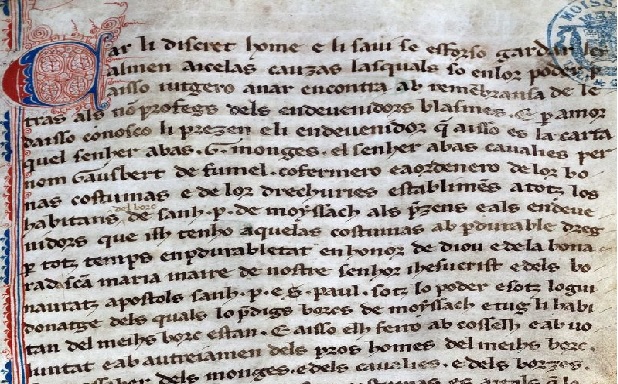 Car li discret home e li saui se efforso gardar lei
almen aicelas cauzas lasquals so en lor poder. p
aisso iutgero auar encontra ab remēbransa de le
tras als nō profegs dels endeuenidors blasmes. E p amor
daisso conosco li prezen e li endeuenidor q̄ aisso es la carta
quel senher abas .G. monges. el senher abas caualies per
nom Gausbert de fumel. cofermero e aordenero de lor bo
nas costumas e de lor drechuries establimēs a totz los
del borc
habitans de sanh .p. de moyssach als p̄zens e als endeue
nidors que ilh tenho aquelas costumas ab pdurable dreg
p totz temps en pdurabletat en honor de diou e de la bona
radescā maria maire de nostre senhor ihesucrist e dels bo
nauratz apostols sanh .p. e .S. paul. sotz lo poder e sotz lo gui
donatge dels quals lo p̄digs borcs de moyssach e tug li habi
tan del meihs borc estan. E aisso elh feiro ab cosselh e ab uo
luntat e ab autreiamen dels pros homes del meihs borc.
assaber dels monges. e dels caualies. e dels borzes.